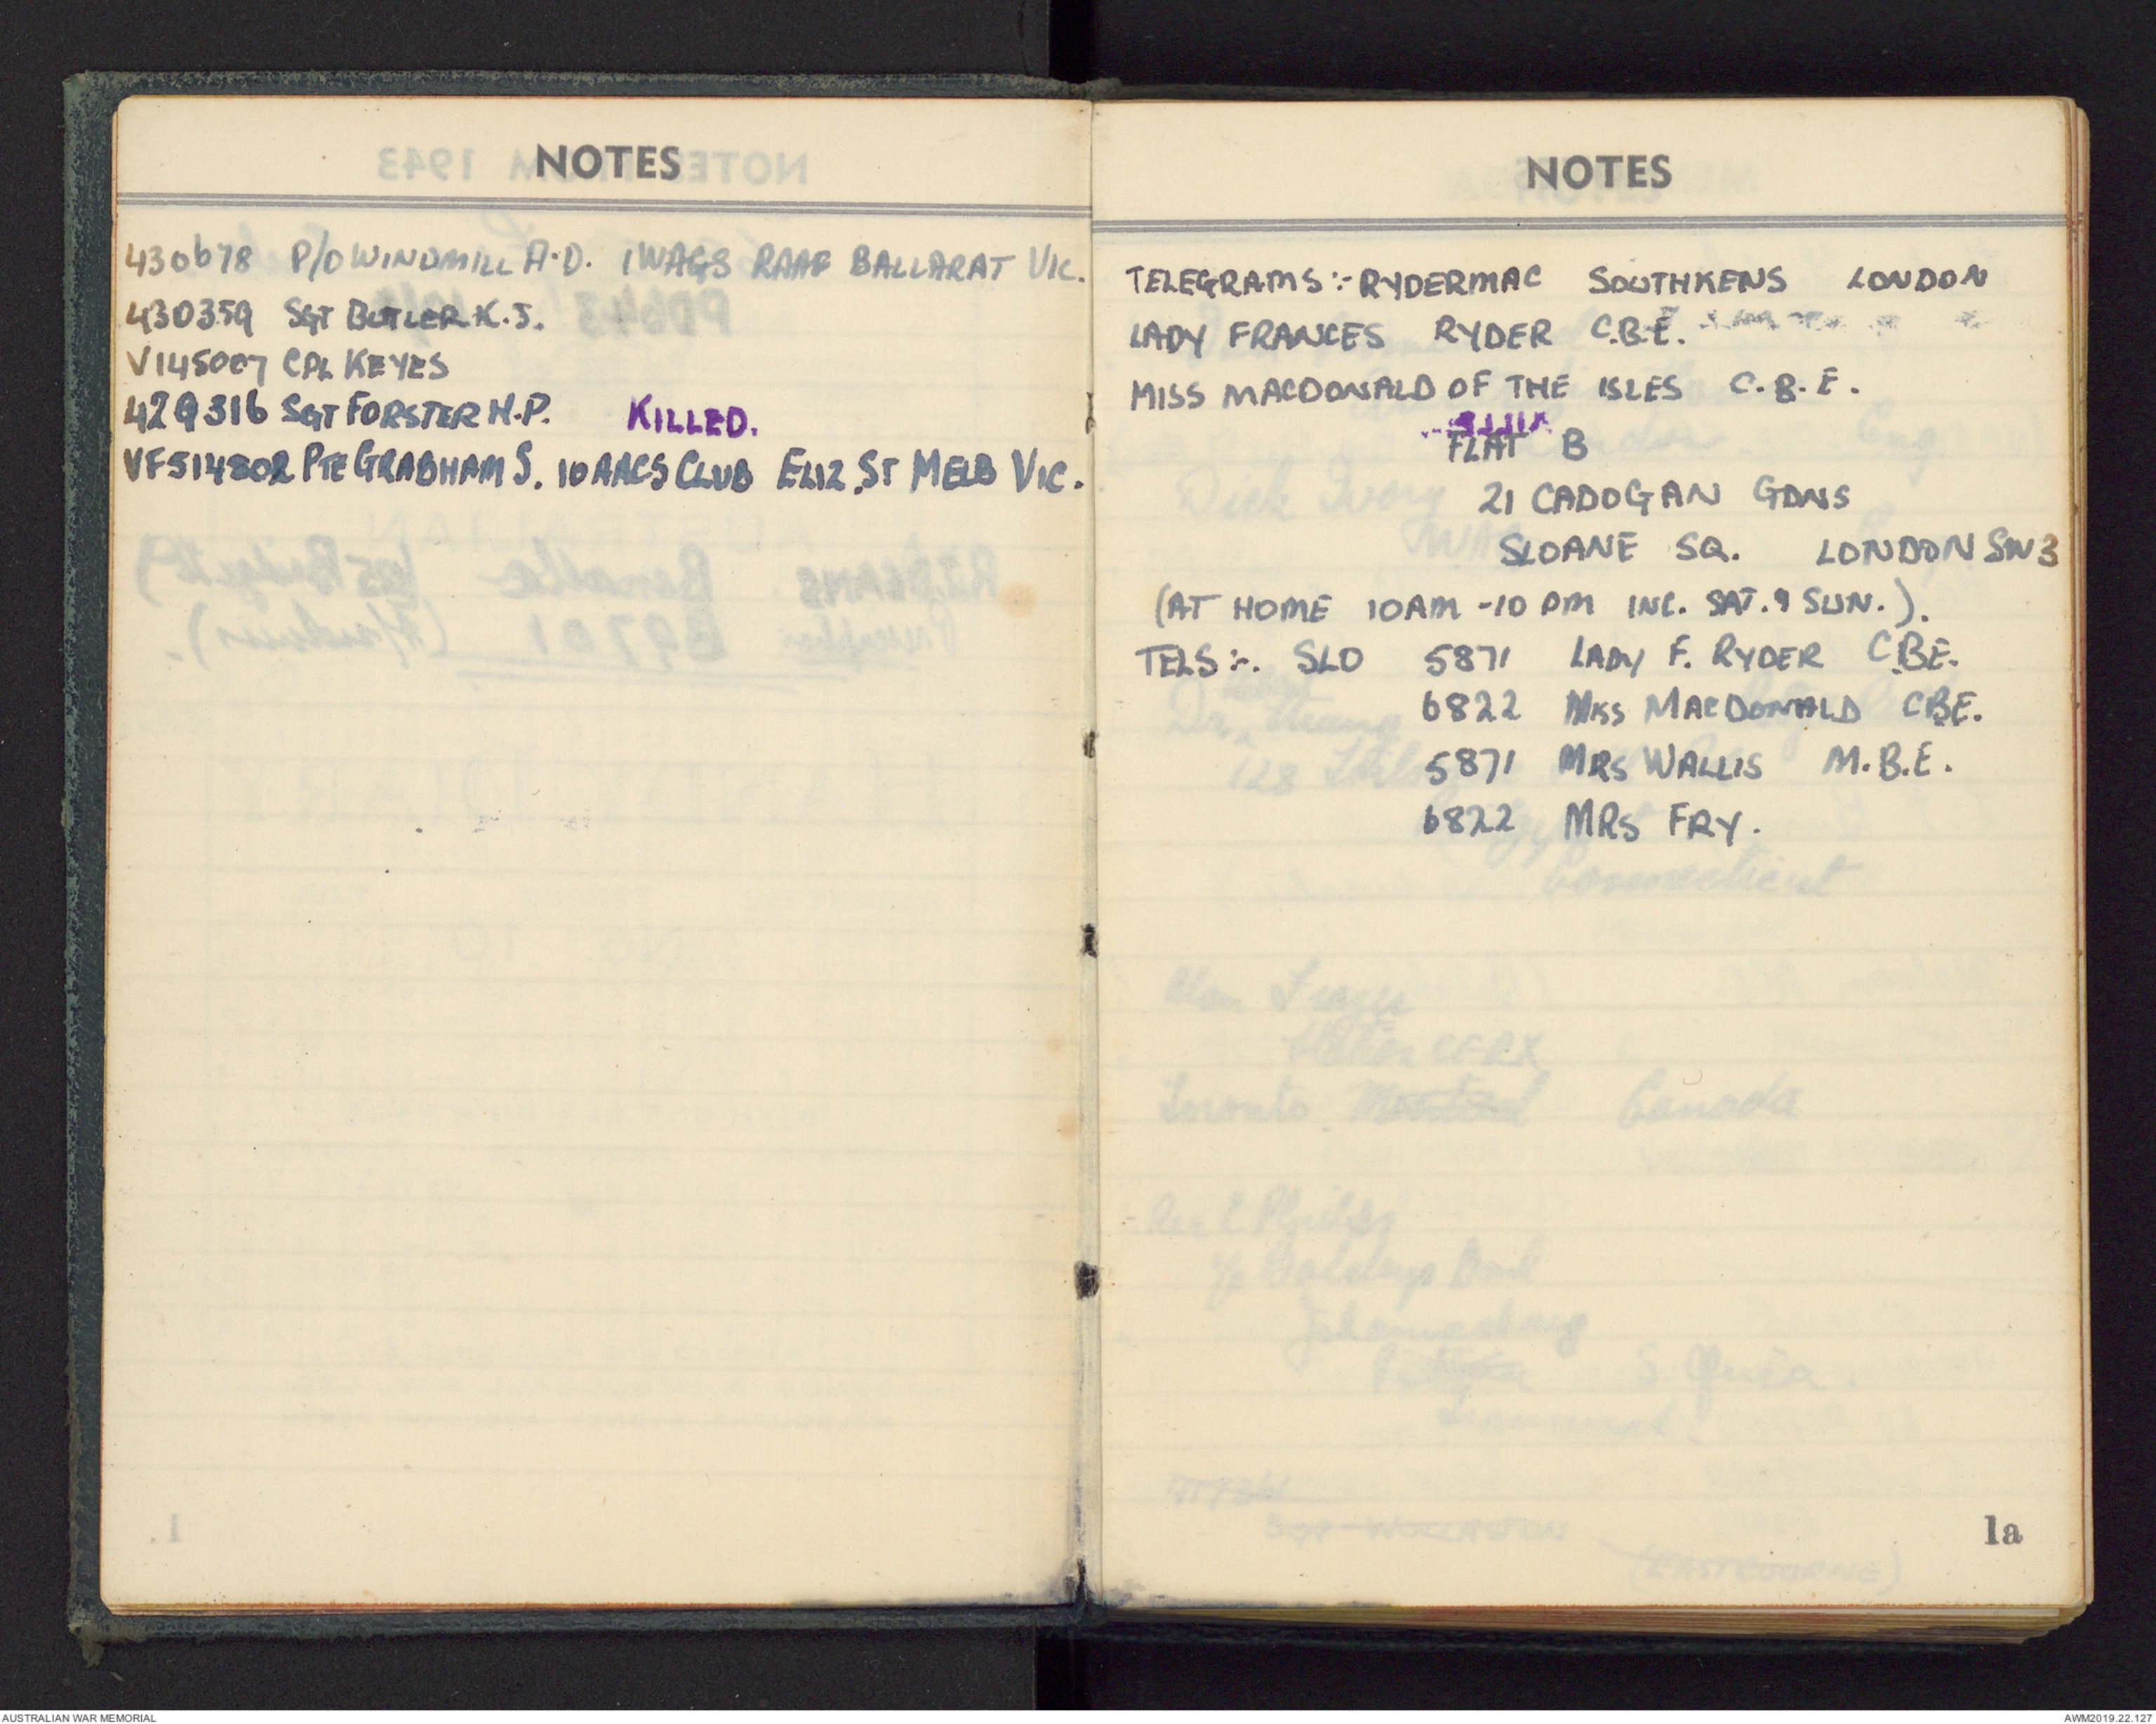 NOTES
430678 P/O WINDMILL A.D. 1WAGS RAAF BALLARAT VIC.
430359 SGT BUTLER K.J.
V145007 CPL KEYES
429316 SGT FORSTER H.P. KILLED.
VF514802 PTE GRABHAM S. 10 AACS CLUB ELIZ. ST MELB VIC.
NOTES
TELEGRAMS :- RYDERMAC SOUTHKENS LONDON
LADY FRANCES RYDER C.B.E.
MISS MACDONALD OF THE ISLES C.B.E.
FLAT B
21 CADOGAN GDNS
SLOANE SQ. LONDON SW3
(AT HOME 10AM - 10 PM INC. SAT. & SUN.).
TELS :-. SLO 5871 LADY F. RYDER C.B.E.
6822 MISS MACDONALD CBE.
5871 MRS WALLIS M.B.E.
6822 MRS FRY.
1a
AUSTRALIAN WAR MEMORIAL
AWM2019.22.127